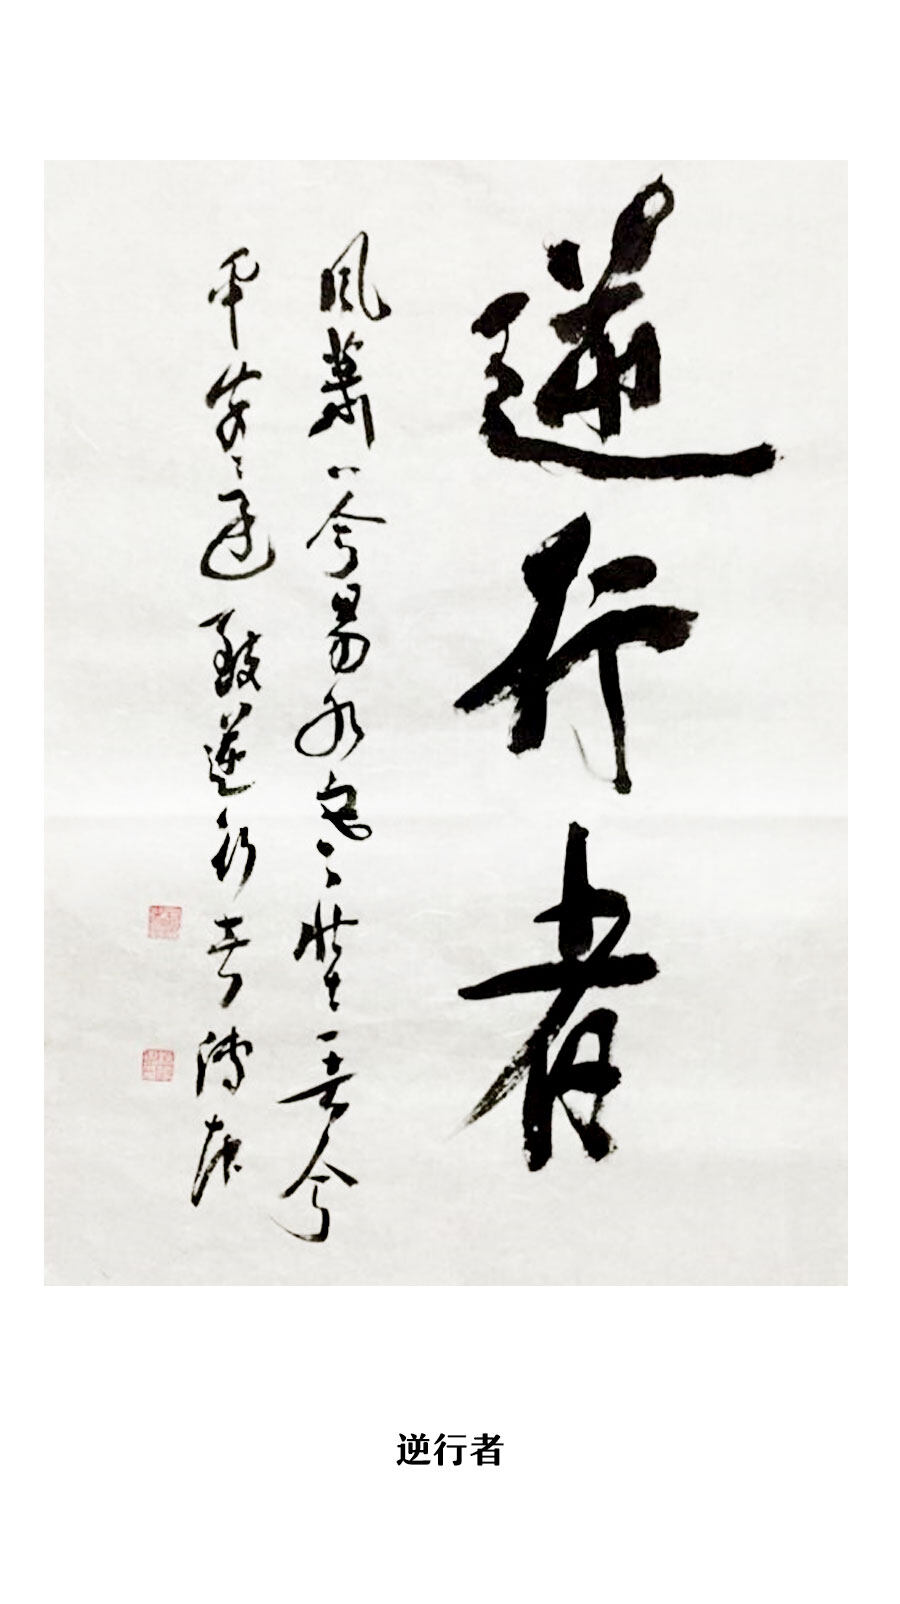 逆行者
風蕭〻兮易水寒壯士一去兮
平安 致逆行者
逆行者